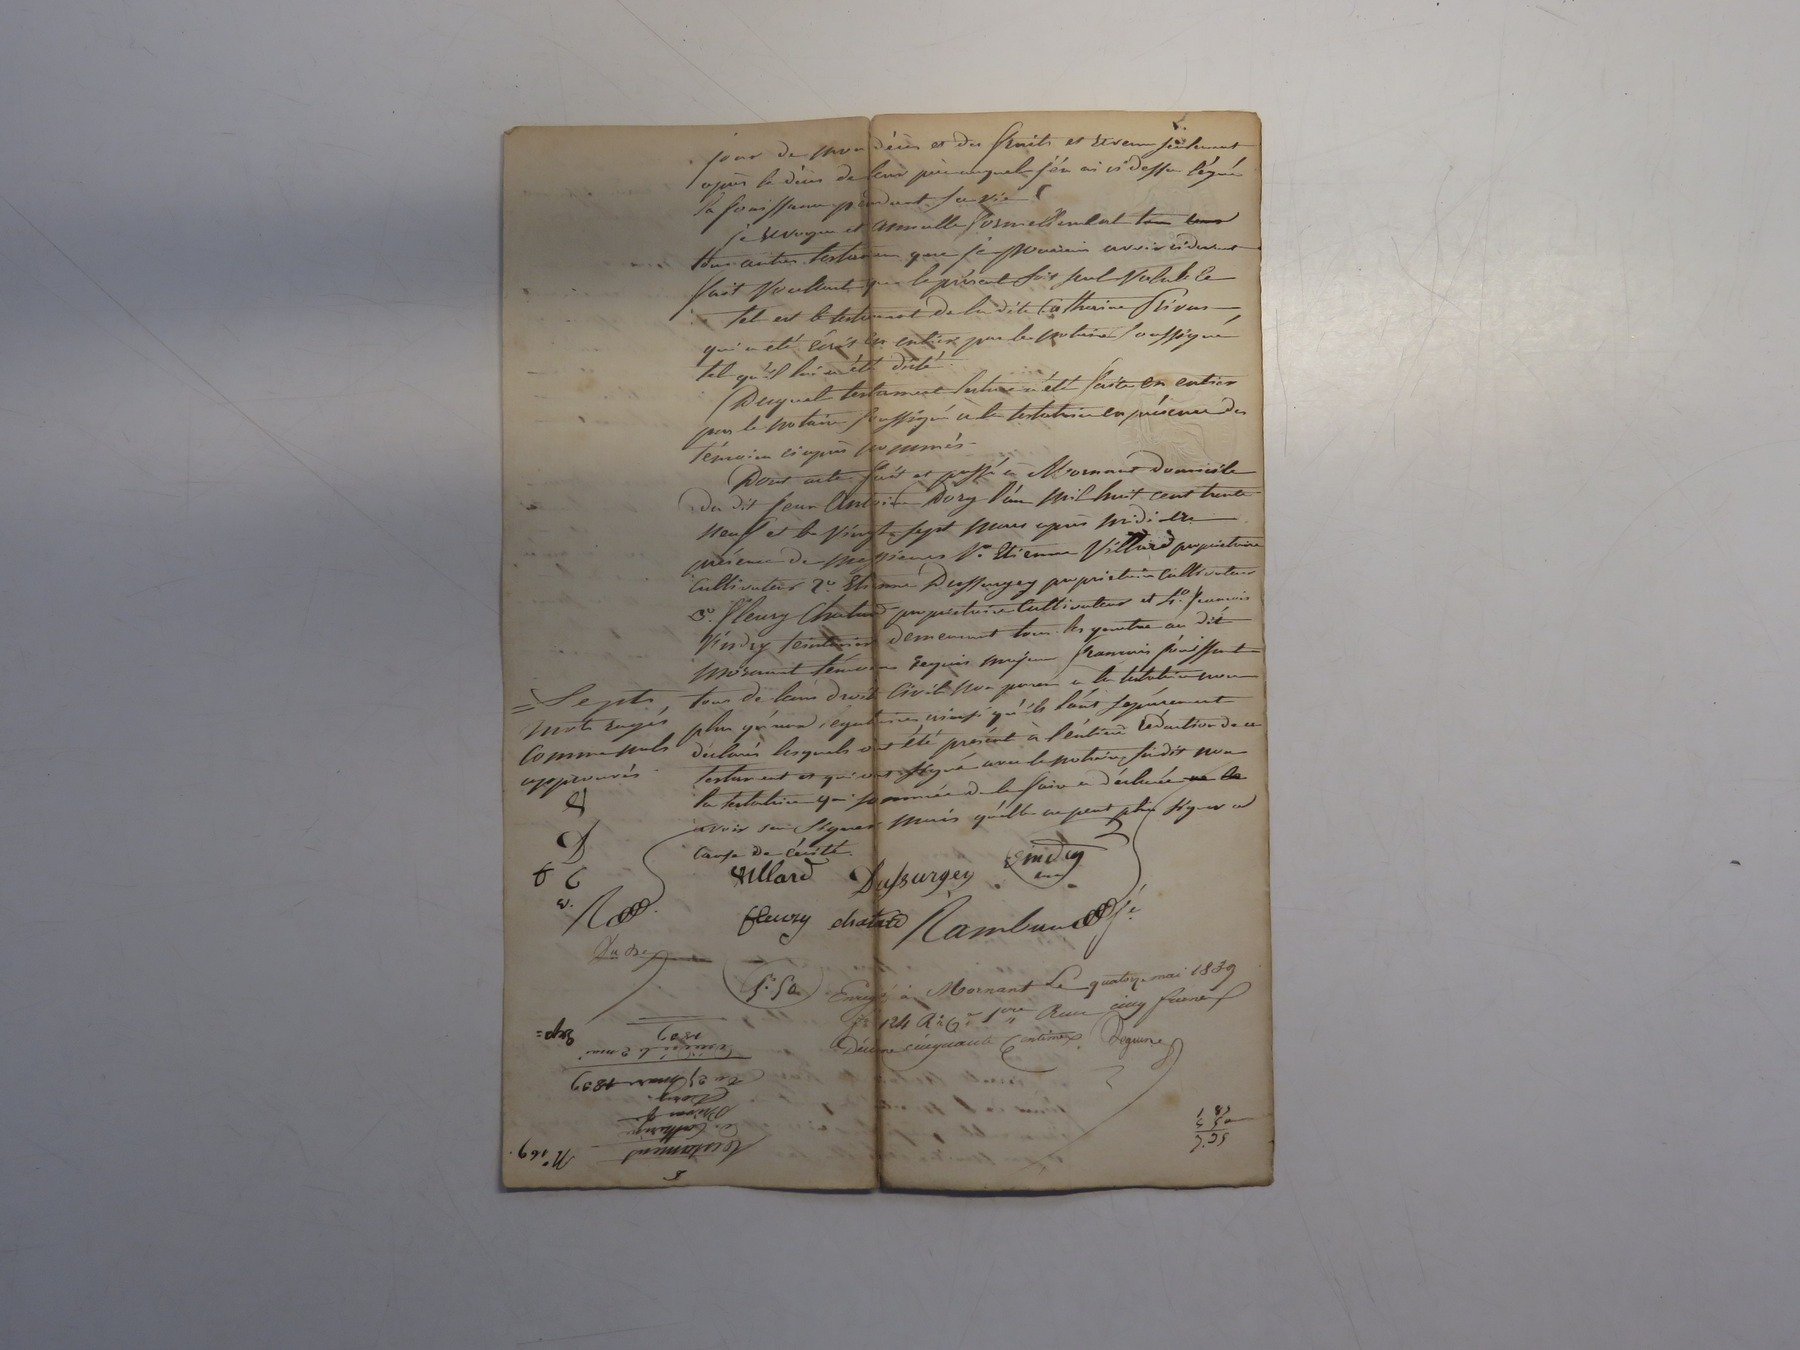 jour de mon décès et des fruits et revenu seulement
après le décès de leur père auquel j'en ai ci dessu légué
la jouissance pendant sa vie
je revoque et annulle formellement tou tous
tous autres testamen que je pourrais avoir cidevant
fait voulant que le présent soit seul valable
tel est le testament de la dite Catherine Privas
qui a été écrit en entier par le notaire soussigné
tel qu'il lui a été dicté
Duquel testament lecture a été faite en entier
par le notaire soussigné à la testatrice en présence des
témoins ciaprès nommés
Dont acte fait et passé à Mornant domicile
du dit Jean Antoine Dory l'an mil huit cent trente
neuf et le vingt sept mars après midi en
présence de messieurs 1o. Etienne Villard propriétaire
cultivateur 2o. Etienne Dussurgey propriétaire cultivateur
3o. fleury Chatard propriétaire cultivateur et 4o. francois
Vindry teinturier demeurant tous les quatre au dit
mornant témoins requis majeur francais jouissant
tous de leurs droit civils non paren à la testatrice non
plus qu'aux légataires ainsi qu'ils l'ont séparément
déclarés lesquels ont été présent à l'entière rédaction de ce
testament et qui ont signé avec le notaire sudit non
la testatrice qui sommée de le faire a déclarée ne le
avoir su signer mais qu'elle ne peut plus signer à
cause de cécité.
= Septs
mots rayés
comme nuls
approuvés
Villard Dussurgey Vindry
fleury chatard Rambaud
5f. 50
Enregé à Mornant Le quatorze mai 1839
fo 124 Ro Co Reçu cinq francs
Décime cinquante Centimes.
No 169.
Testament
Catherine
Privas
Dory
du 27 mars 1839
2 mai
1839
Expé=